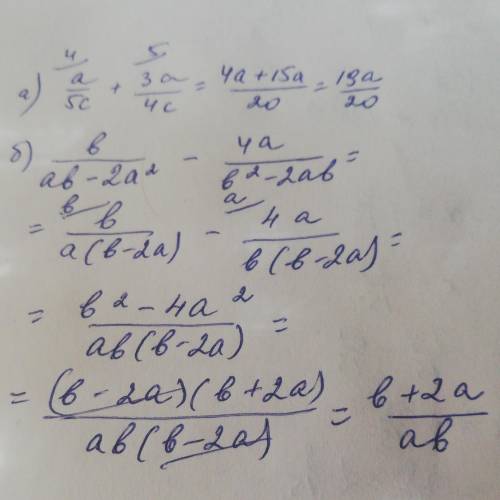 4 5
а) a/5c + 3a/4c = 4a+15a/20 = 19a/20
б) b/ab-2a² - 4a/b²-2ab =
= b b/a(b-2a) - a 4a/b(b-2a) =
= b²-4a²/ab(b-2a) =
= (b-2a)(b+2a)/ab(b-2a) = b+2a/ab